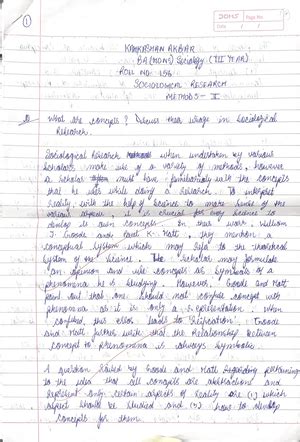 1
DOMS Page No.
Date / /
AKBAR
BA (HONS) Sociology (III YEAR)
ROLL NO: 156
SOCIOLOGICAL RESEARCH
METHODS - I
Q What are concepts? Discuss their usage in sociological
Research.
Sociological Research when undertaken by various
scholars make use of a variety of methods, however
a scholar must have familiarity with the concepts
that he uses while doing a research. To interpret
reality, with the help of science to make sense of the
various aspects, it is crucial for any science to
develop its own concepts. In their work William
J. Goode and Paul K. Hatt, they mention a
conceptual system which may refer to the theoretical
system of the science. The scholar may formulate
an opinion and use concepts as symbols of a
phenomena he is studying. However, Goode and Hatt
point out that one should not confuse concept with
phenomena as it is only a representation. When
confused this error leads to reification. Goode
and Hatt further write that the Relationship between
concept to phenomena is always symbolic.
A question raised by Goode and Hatt regarding pertaining
to the idea that all concepts are abstractions and
represent only certain aspects of reality are (1) which
aspect should be studied and (2) how to develop
concepts for them.